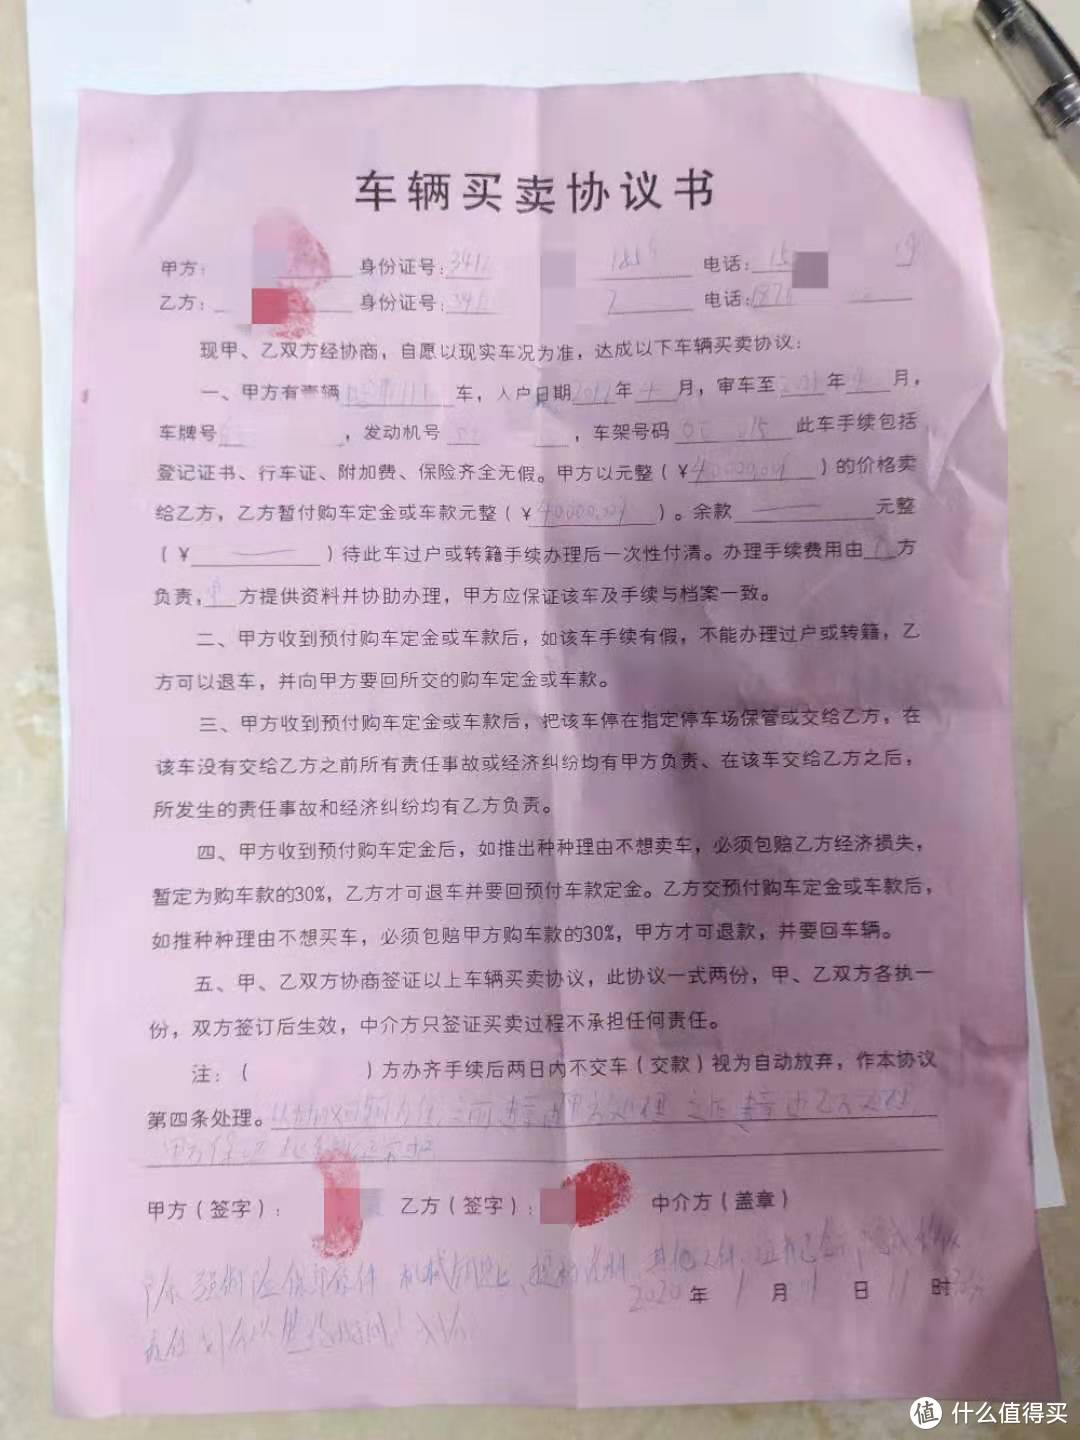 车辆买卖协议书
甲方： 身份证号： 电话：
乙方： 身份证号： 电话：
现甲、乙双方经协商，自愿以现实车况为准，达成以下车辆买卖协议：
一、甲方有壹辆 车，入户日期 2017年 4 月，审车至 年 月，
车牌号 ，发动机号 ，车架号码 此车手续包括
登记证书、行车证、附加费、保险齐全无假。甲方以元整（¥ 40000.00 ）的价格卖
给乙方，乙方暂付购车定金或车款元整（¥ 40000.00 ）。余款 元整
（¥ ）待此车过户或转籍手续办理后一次性付清。办理手续费用由 方
负责， 方提供资料并协助办理，甲方应保证该车及手续与档案一致。
二、甲方收到预付购车定金或车款后，如该车手续有假，不能办理过户或转籍，乙
方可以退车，并向甲方要回所交的购车定金或车款。
三、甲方收到预付购车定金或车款后，把该车停在指定停车场保管或交给乙方，在
该车没有交给乙方之前所有责任事故或经济纠纷均有甲方负责、在该车交给乙方之后，
所发生的责任事故和经济纠纷均有乙方负责。
四、甲方收到预付购车定金后，如推出种种理由不想卖车，必须包赔乙方经济损失，
暂定为购车款的30%，乙方才可退车并要回预付车款定金。乙方交预付购车定金或车款后，
如推种种理由不想买车，必须包赔甲方购车款的30%，甲方才可退款，并要回车辆。
五、甲、乙双方协商签证以上车辆买卖协议，此协议一式两份，甲、乙双方各执一
份，双方签订后生效，中介方只签证买卖过程不承担任何责任。
注：（ ）方办齐手续后两日内不交车（交款）视为自动放弃，作本协议
第四条处理。 之前 由甲方处理 之后 由乙方处理
甲方保证
甲方（签字）： 乙方（签字）： 中介方（盖章）
2020 年 1 月 日 11 时
值 什么值得买